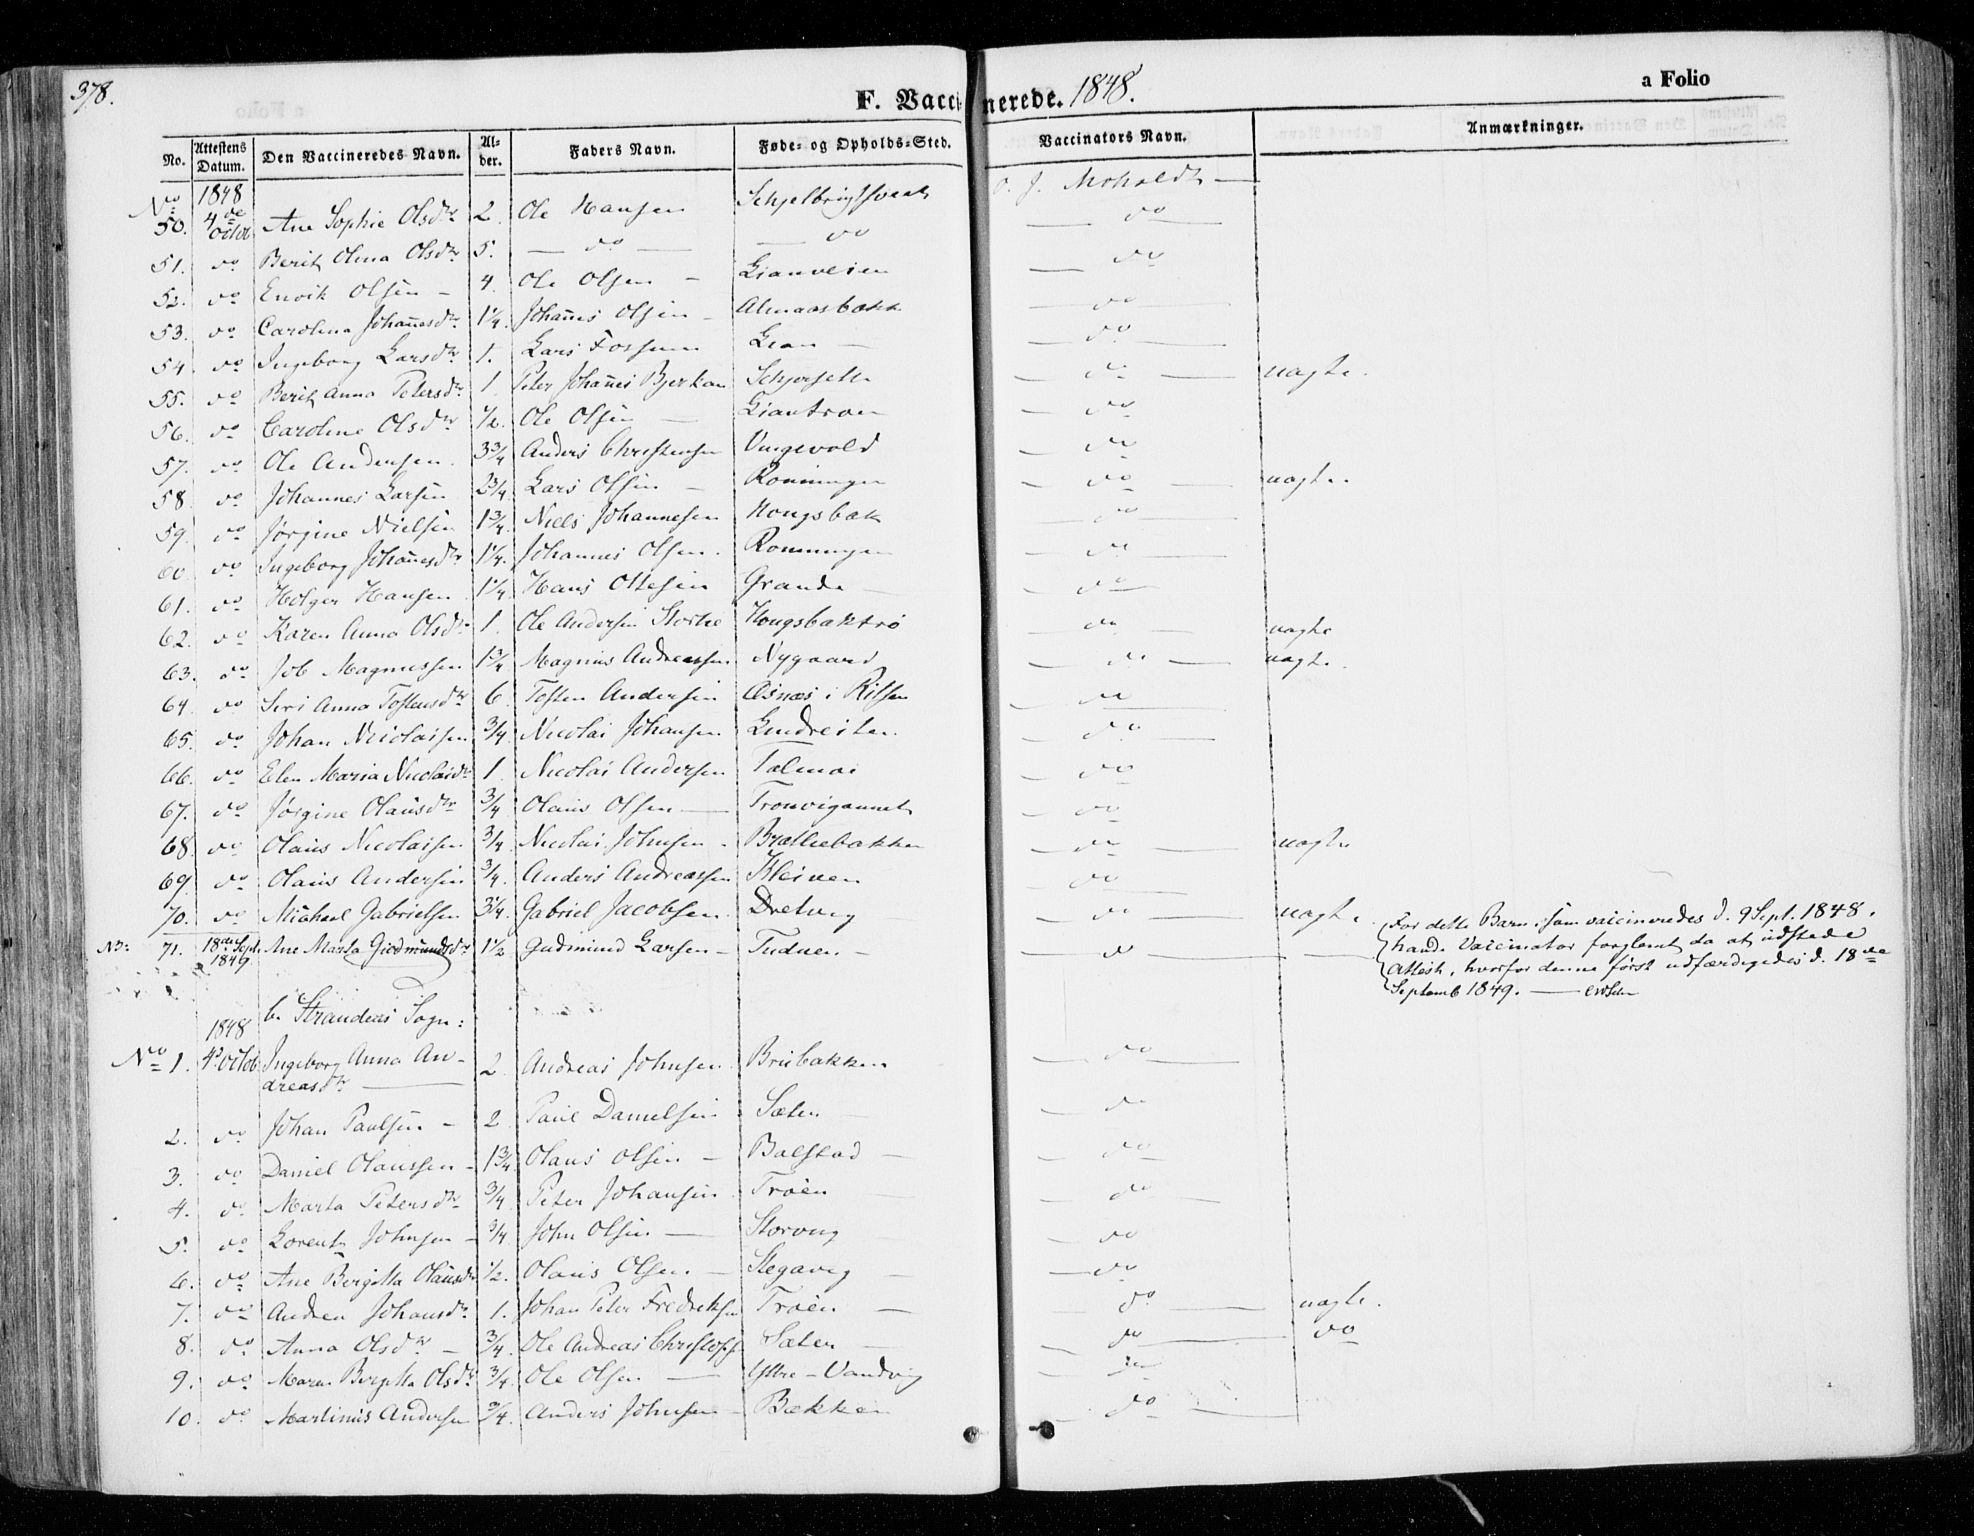 378.
F. Vaccinerede. 1848.
a Folio
No. Attestens Datum. Den Vaccineredes Navn. Alder. Faders Navn. Føde- og Opholds-Sted. Vaccinators Navn. Anmærkninger.
No 50. 1848 4de Octob Ane Sophie Olsdr 2. Ole Hansen O. J. Moholdt —
51. do Berit Olina Olsdr 5. — do — — do — do —
52. do Olsen — 4. Ole Olsen — Lianveien — do —
53. do Carolina Johañesdr 1 1/4. Johañes Olsen — Almaasbakk — do —
54. do Ingeborg Larsdr 1. Lars Fossum Lian — — do —
55. do Berit Anna Petersdr 1. Peter Johañes Bjerkan — do — uægte.
56. do Caroline Olsdr 1/2. Ole Olsen — Liantroen — do
57. do Ole Andersen. 3 3/4 Anders Christensen Vingevold — do
58. do Johannes Larsen 2 3/4. Lars Olsen — Ronningen — do — uægte.
59. do Jørgine Nielsen 1 3/4. Niels Johannesen Hougsbak — do —
60. do Ingeborg Johañesdr 1 1/4. Johannes Olsen. Ronningen — do —
61. do Holger Hansen 1 1/4 Hans Ottesen Grande — — do —
62. do Karen Anna Olsdr 1. Ole Andersen Hougsbaktrø — do — uægte
63. do Job Magnussen 1 3/4 Magnus Andreassen Nygaard — do — uægte.
64. do Siri Anna Tostensdr 6. Tosten Andersen Æsnæs i Ritsen — do —
65. do Johan Nicolaisen 3/4. Nicolai Johansen — do —
66. do Elen Maria Nicolaidr 1. Nicolai Andersen — do
67. do Jørgine Olausdr 3/4 Olaus Olsen — — do
68. do Olaus Nicolaisen 3/4. Nicolai Johnsen — Brættebakken — do — uægte
69. do Olaus Andersen 3/4. Anders Andreassen Kleiven — do —
70. do Michael Gabrielsen 3 1/4. Gabriel Jacobsen. Dretvig — do — uægte.
NB: 71. 18de Sept. 1849 Ane Marta Gudmundsdr 1 1/2 Gudmund Larsen — — do —
For dette Barn, som vaccineredes d. 9 Sept. 1848,
havde Vaccinator forglemt da at udstede
Attest, hvorfor denne først udfærdigedes d. 18de
Septemb 1849. —
b. Strandens Sogn:
No 1. 1848 4de Octob. Ingeborg Anna An-
dreasdr — 2. Andreas Johnsen Brubakken — do —
2. do Johan Paulsen — 2 Paul Danielsen Sæter — — do
3. do Daniel Olaussen — 1 3/4 Olaus Olsen — Balstad — — do
4. do Marta Petersdr 3/4. Peter Johansen Trøen — do —
5. do Lorents Johnsen — 3/4 John Olsen — Storvug — do
6. do Ane Bergitta Olausdr 1/2. Olaus Olsen — Stegavig — — do
7. do Andrea Johansdr 1. Johan Peter Fredriksen Trøen — — do — uægte.
8. do Anna Olsdr — 3/4. Ole Andreas Christoph Sæter — — do — do
9. do Maren Bergitta Olsdr 3/4. Ole Olsen — Yttre-Vandvig — do
10. do Martinus Andersen 3/4. Anders Johnsen — Bækken — do —